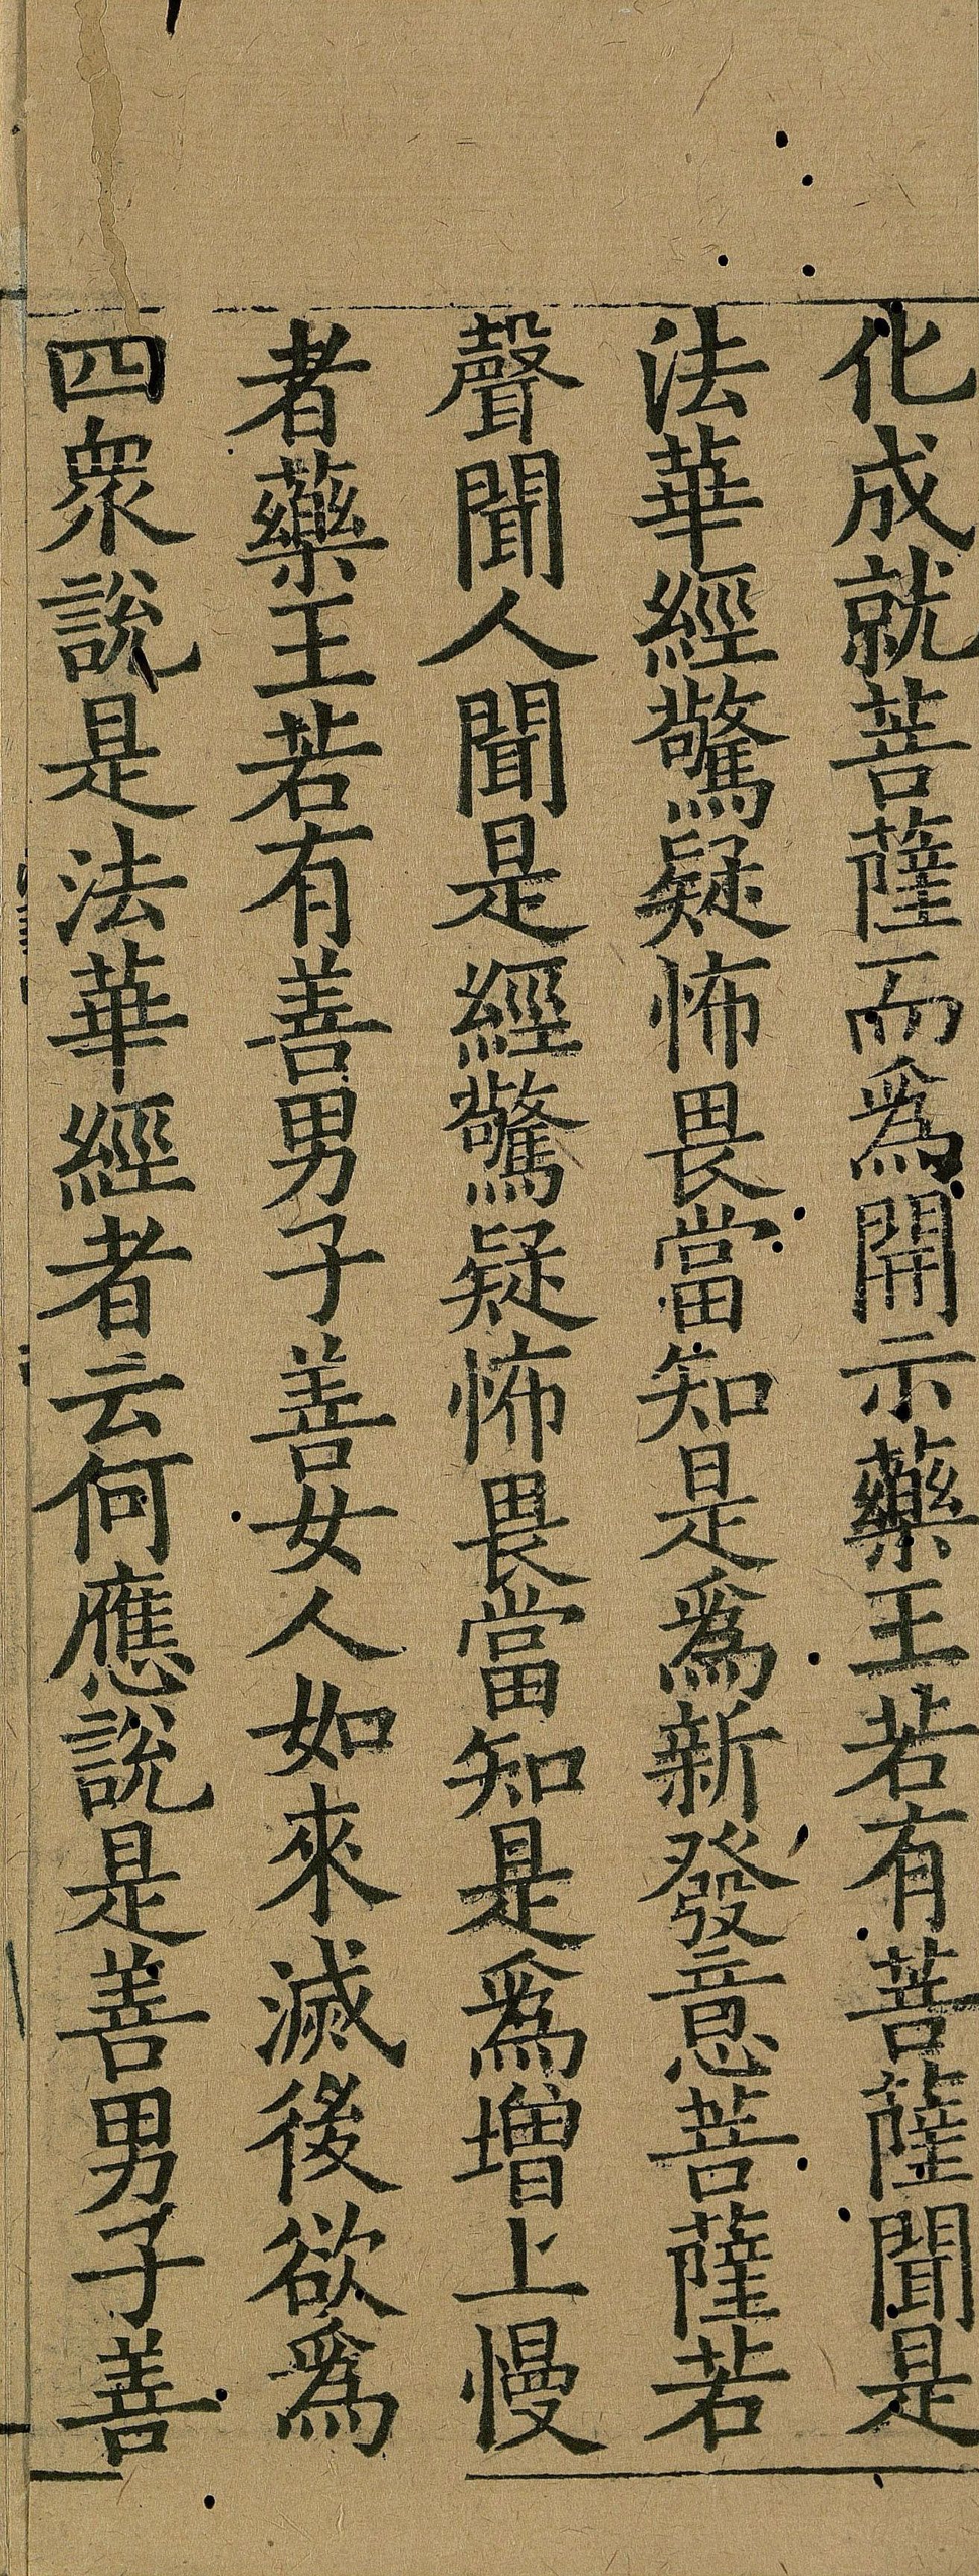 化成就菩薩而爲開示藥王若有菩薩聞是
法華經驚疑怖畏當知是爲新發意菩薩若
聲聞人聞是經驚疑怖畏當知是爲增上慢
者藥王若有善男子善女人如來滅後欲爲
四衆說是法華經者云何應說是善男子善